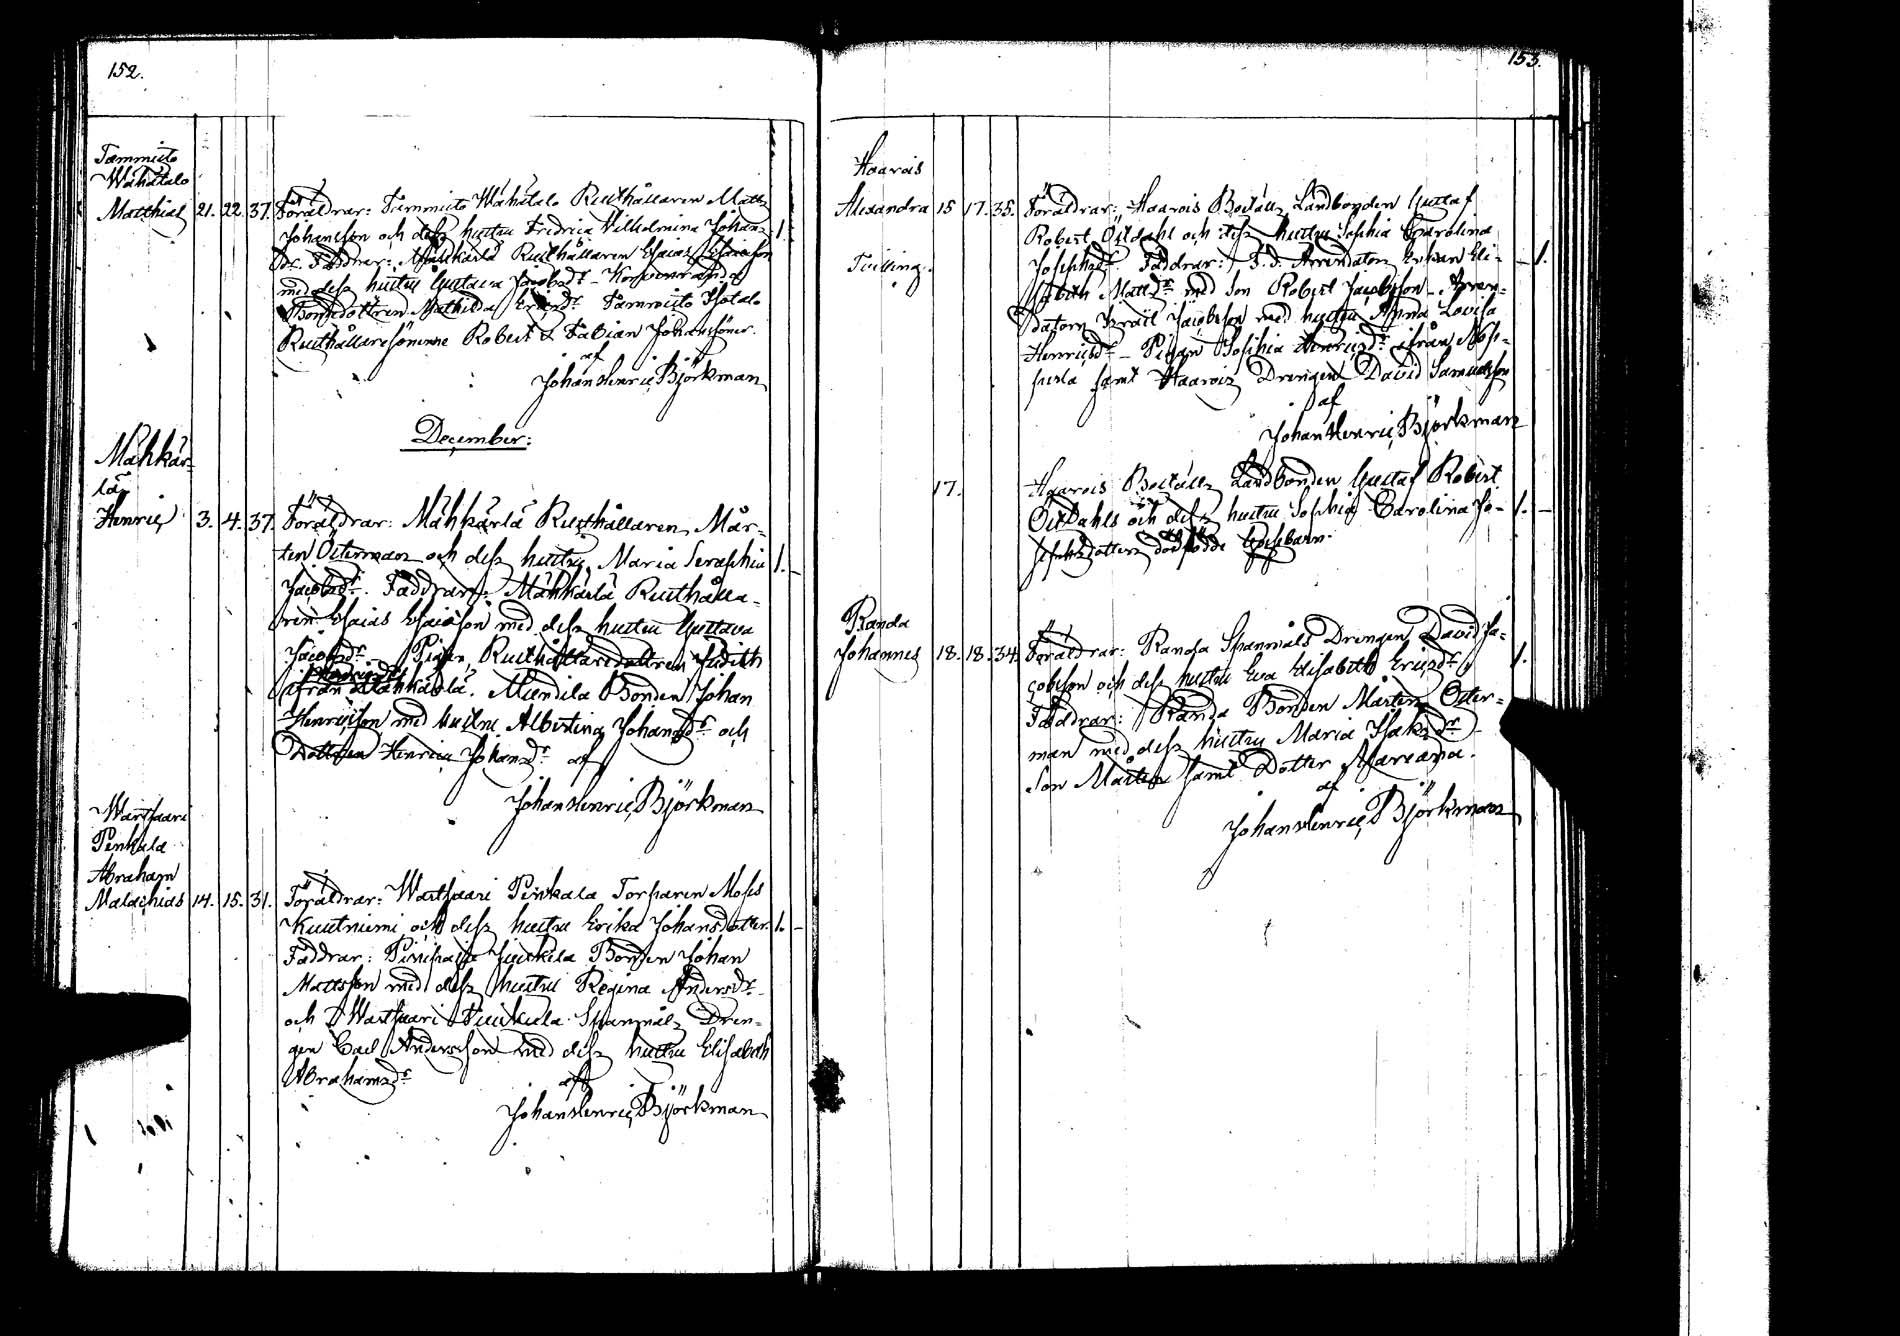 152.
Tammisto
Wähätalo
Matthias 21. 22. 37. Föräldrar: Tammisto Wähätalo Rusthållaren Matts
Johansson och dess hustru Fredrica Wilhelmina Johans- 1.
dr. Faddrar: Mähkärlä Rusthållaren Esaias Esaiasson
med dess hustru Gustava Jacobsdr
Bondedottren Mathilda Ericsdr Tammisto Ylotalo
Rusthållaresönerne Robert & Fabian Johanssöner.
af
Johan Henric Björkman
December:
Mähkär-
lä
Henric 3. 4. 37. Föräldrar: Mähkärlä Rusthållaren Mår-
ten Österman och dess hustru Maria Seraphia 1.
Jacobsdr. Faddrar: Mähkärlä Rusthålla-
ren Esaias Esaiasson med dess hustru Gustava
Jacobsdr Pigan Rusthållaredottren Judith
ifrån Mähkärlä. Mundila Bonden Johan
Henricsson med hustru Albertina Johansdr och
Dottren Henrica Johansdr af
Johan Henric Björkman
Wartsaari
Penkala
Abraham
Malachias 14. 15. 31. Föräldrar: Wartsaari Penkala Torparen Moses
Kuutniemi och dess hustru Erika Johansdotter. 1.
Faddrar: Junkila Bonden Johan
Mattsson med dess hustru Regina Andersdr
och Wartsaari Spannmåls Dren-
gen Carl Andersson med dess hustru Elisabeth
Abrahamsdr
af
Johan Henric Björkman
153.
Haarois
Alexandra 15 17. 35. Föräldrar: Haarois Boställs Landbonden Gustaf
Robert Östdahl och dess hustru Sophia Carolina
Tvilling. Josephsdr. Faddrar: F.d. Arrendators Enkan Eli- 1.
sabeth Mattsdr med son Robert Jacobsson - Arren-
datorn Israel Jacobsson med hustru Anna Lovisa
Henricsdr - Pigan Sophia Henricsdr ifrån Nop-
perla samt Haarois Drengen David Samuelsson
af
Johan Henric Björkman
17. Haarois Boställs Landbonden Gustaf Robert
Östdahls och dess hustru Sophia Carolina Jo- 1.
sephsdotters dödfödde Gossebarn.
Randa
Johannes 18. 18. 34. Föräldrar: Randa Spannmåls Drengen David Ja-
cobsson och dess hustru Eva Elisabeth Ericsdr 1.
Faddrar: Randa Bonden Mårten Öster-
man med dess hustru Maria Isaksdr
Son Mårten samt Dotter Mariana.
af
Johan Henric Björkman